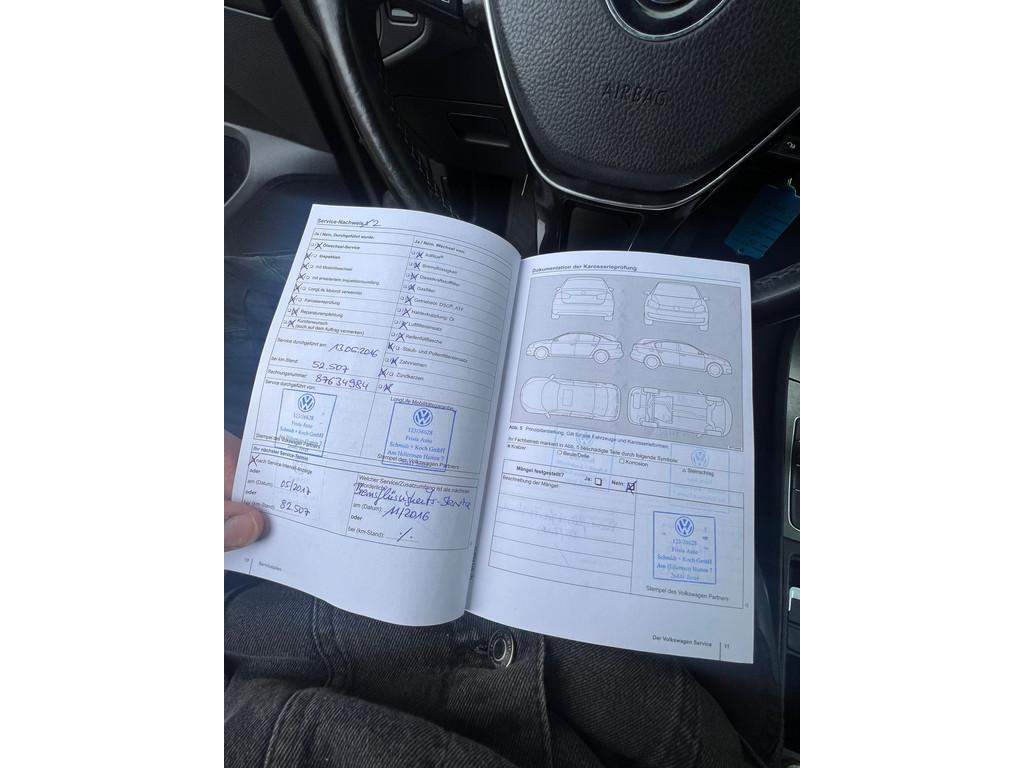 AIRBAG
Service-Nachweis 2
Ja / Nein, Durchgeführt wurde:
Ölwechsel-Service
Inspektion
mit Mobilitätscheck
mit erweitertem Inspektionsumfang
LongLife Motoröl verwendet
Karosserieprüfung
Reparaturempfehlung
Kundenwunsch
(auch auf dem Auftrag vermerken)
Service durchgeführt am: 13.06.2016
bei km-Stand: 52.507
Rechnungsnummer: 87634984
Service durchgeführt von:
Stempel des Volkswagen Partners
Ihr nächster Service-Termin
nach Service-Intervall-Anzeige
oder
am (Datum): 05/2017
oder
bei (km-Stand): 82.507
10 Serviceplan
Ja / Nein, Wechsel von:
AdBlue®
Bremsflüssigkeit
Dieselkraftstofffilter
Gasfilter
Getriebeöl: DSG®, ATF
Haldexkupplung: Öl
Luftfiltereinsatz
Reifenfüllflasche
Staub- und Pollenfiltereinsatz
Zahnriemen
Zündkerzen
LongLife Mobilitätsgarantie
123/38628
Frisia Auto
Schmidt + Koch GmbH
123/38628
Frisia Auto
Schmidt + Koch GmbH
Stempel des Volkswagen Partners
Welcher Service/Zusatzumfang ist als nächster
erforderlich:
Bremsflüssigkeits-Service
am (Datum): 11/2016
oder
bei (km-Stand): ./.
Dokumentation der Karosserieprüfung
Abb. 5 Prinzipdarstellung. Gilt für alle Fahrzeuge und Karosserieformen
Ihr Fachbetrieb markiert in Abb. 5 beschädigte Teile durch folgende Symbole:
x Kratzer
Beule/Delle
Korrosion
Steinschlag
Mängel festgestellt? Ja: Nein:
Beschreibung der Mängel:
123/38628
Frisia Auto
Schmidt + Koch GmbH
Stempel des Volkswagen Partners
Der Volkswagen Service 11